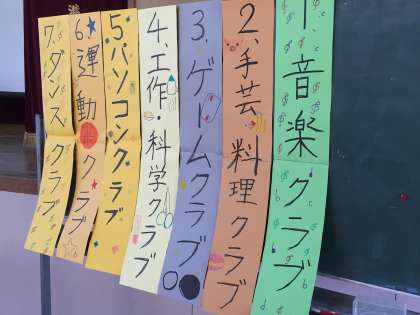 1、音楽クラブ
2、手芸料理クラブ
3、ゲームクラブ
4、工作・科学クラブ
5、パソコンクラブ
6、運動クラブ
7、ダンスクラブ